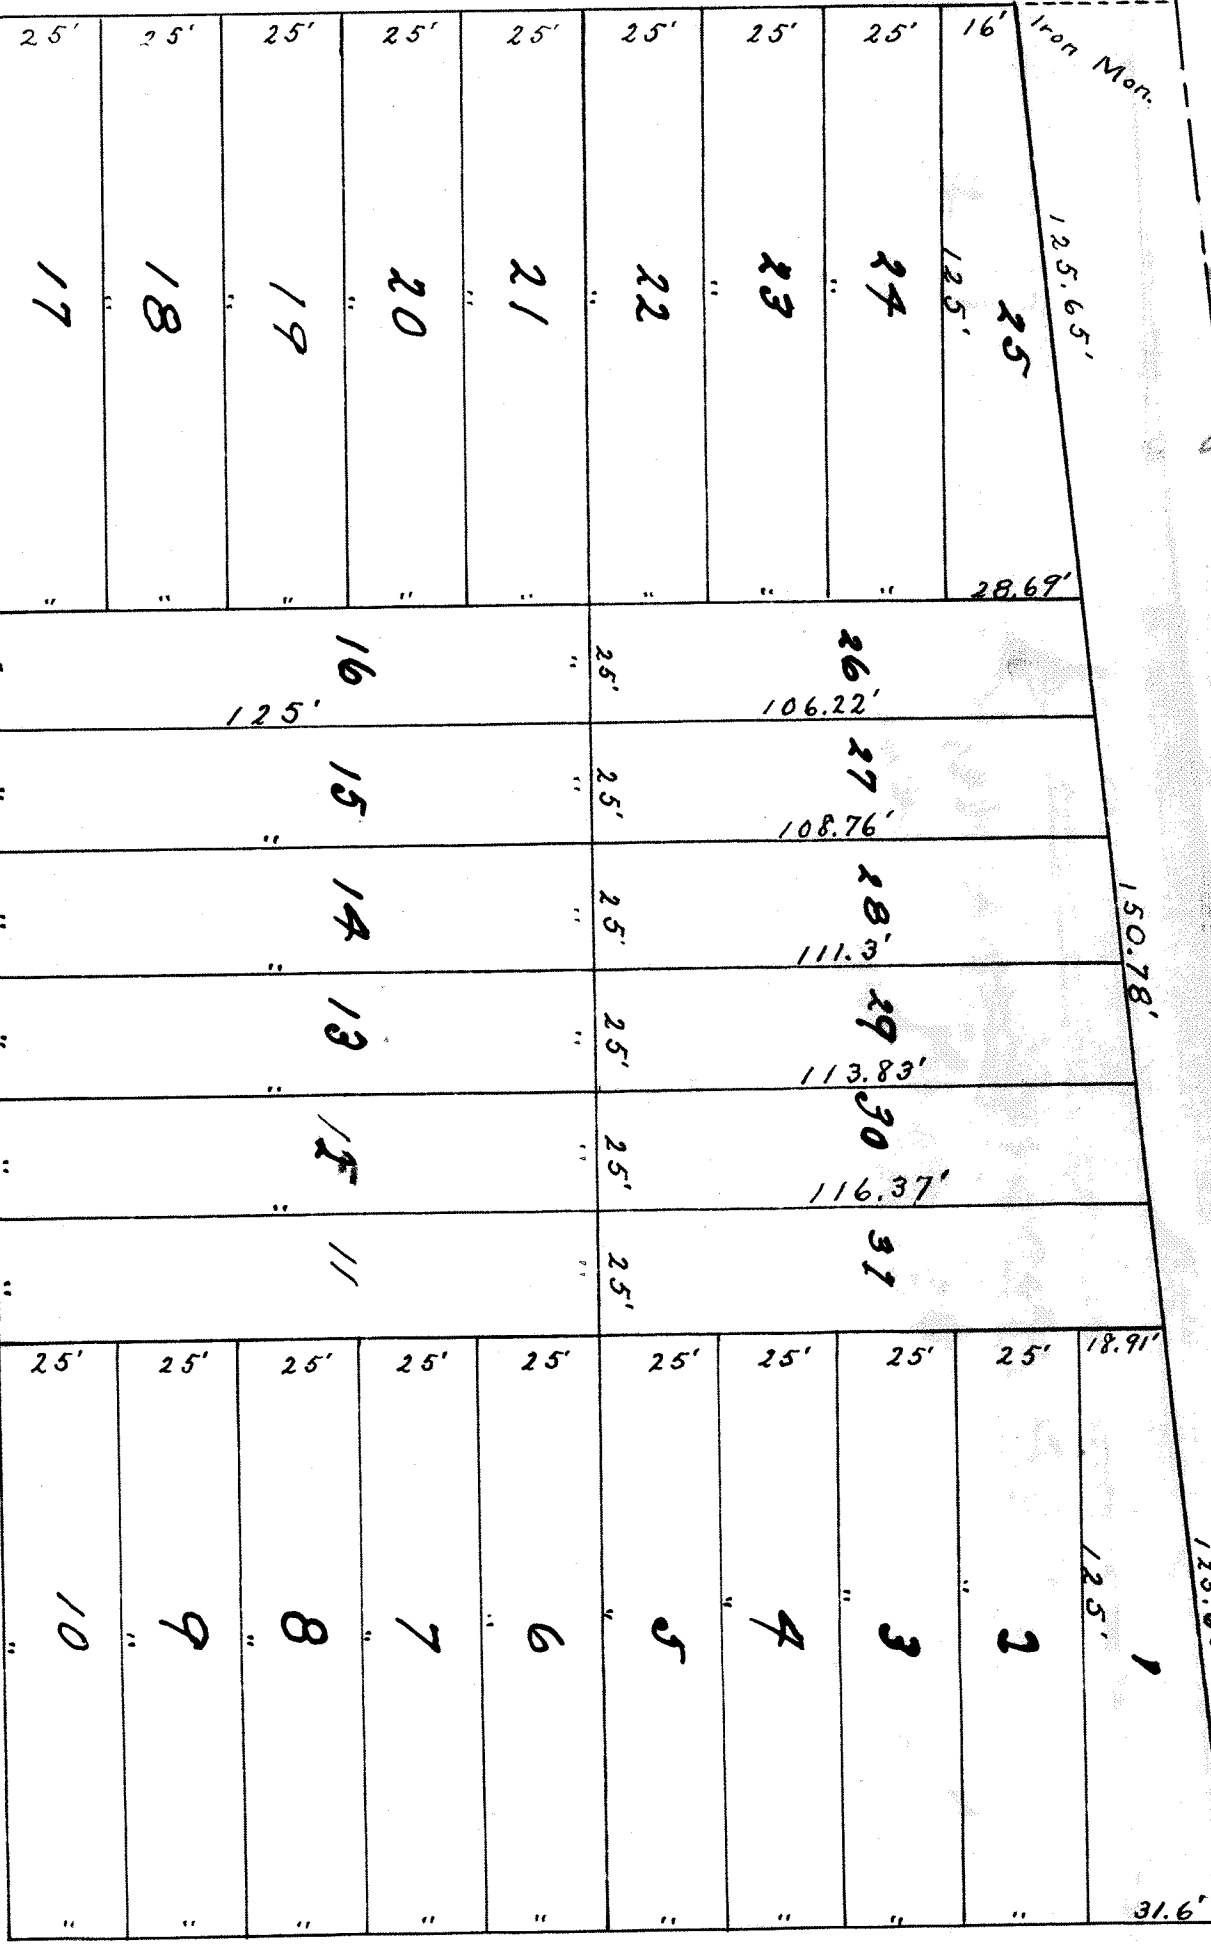 25' 25' 25' 25' 25' 25' 25' 25' 16' Iron Mon.
125.65'
17 18 19 20 21 22 23 24 125' 25
" " " " " " "
" " " " " " " " 28.69'
16 " 25' 26
125' 106.22'
15 " 25' 27
" 108.76'
14 " 25' 28
" 111.3'
150.78'
13 " 25' 29
" 113.83'
12 " 25' 30
" 116.37'
11 " 25' 31
25' 25' 25' 25' 25' 25' 25' 25' 25' 18.91'
125'
10 9 8 7 6 5 4 3 2 1
" " " " " " " " "
" " " " " " " " " 31.6'